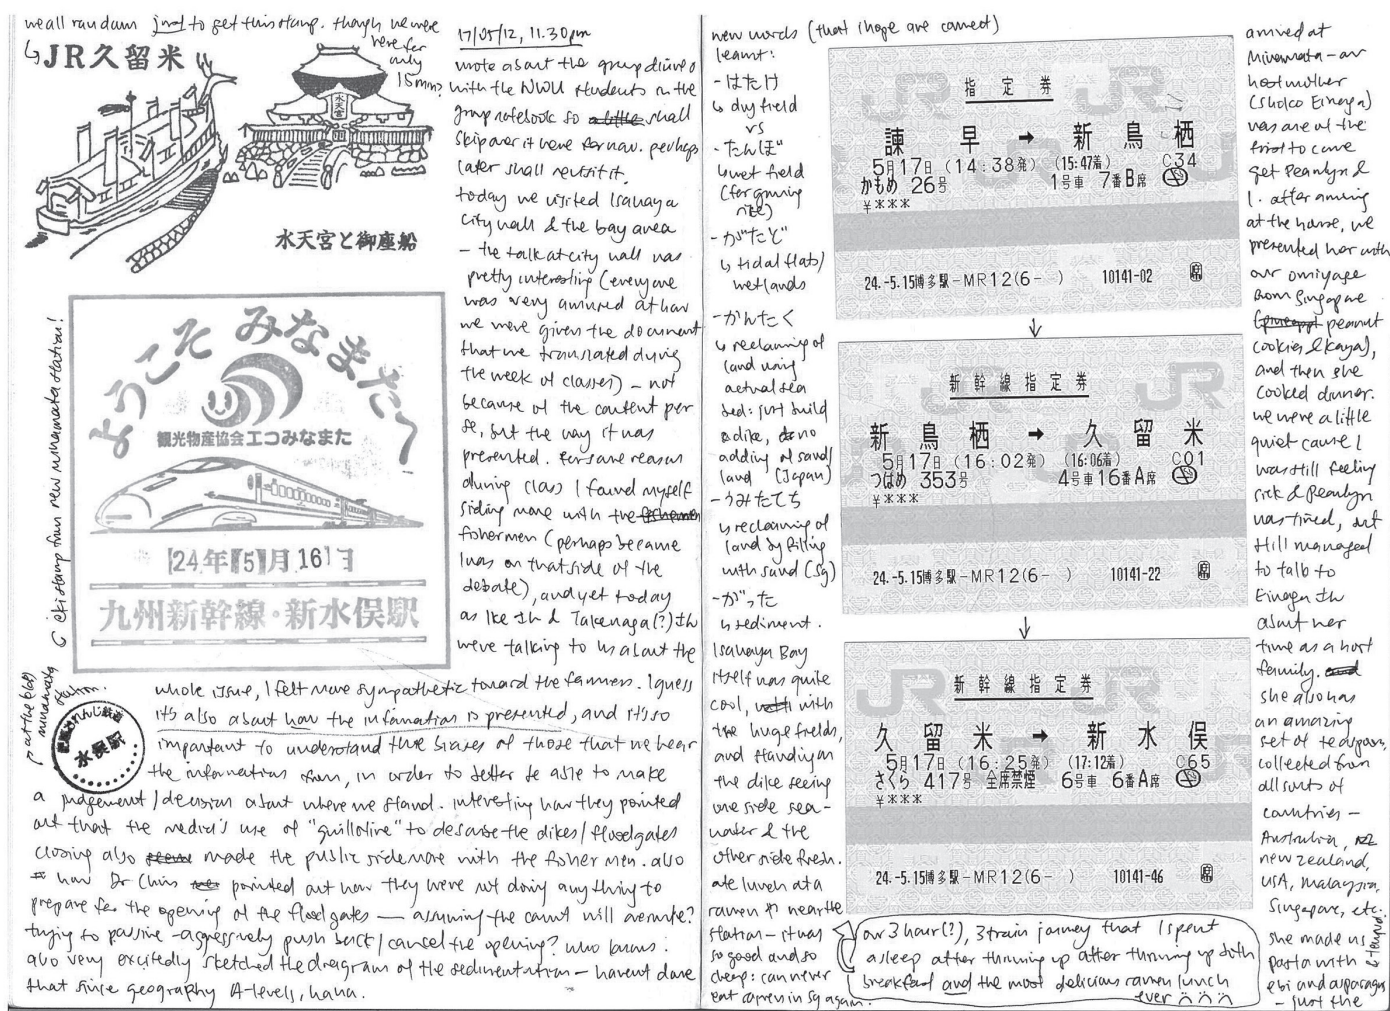 we all ran down just to get this stamp. though we were here for only 15 mins?
JR久留米
水天宮
水天宮と御座船
ekistamp from new minamata station!
ようこそ みなまたへ
観光物産協会エコみなまた
24年 5月16日
九州新幹線・新水俣駅
↗ at the old minamata station.
肥薩おれんじ鉄道
水俣駅
17/05/12, 11.30pm
wrote about the group dinner
with the NWU students in the
group notebook so shall
skip over it here for now. perhaps
later shall revisit it.
today we visited Isahaya
city hall & the bay area
– the talk at city hall was
pretty interesting (everyone
was very amused at how
we were given the document
that we translated during
the week of classes) – not
because of the content per
se, but the way it was
presented. for some reason
during class I found myself
siding more with the
fishermen (perhaps because
I was on that side of the
debate), and yet today
as Ike Sh & Takenaga(?) Sh
were talking to us about the
whole issue, I felt more sympathetic toward the farmers. I guess
it's also about how the information is presented, and it's so
important to understand the biases of those that we hear
the information from, in order to better be able to make
a judgement/decision about where we stand. interesting how they pointed
out that the media's use of "guillotine" to describe the dikes/floodgates
closing also made the public side more with the fishermen. also
how Dr Chins pointed out how they were not doing anything to
prepare for the opening of the floodgates — assuming the court will overrule?
trying to passive-aggressively push back/cancel the opening? who knows.
also very excitedly sketched the diagram of the sedimentation – havent done
that since geography A-levels, haha.
new words (that i hope are correct)
learnt:
- はたけ
↳ dry field
vs
- たんぼ
↳ wet field
(for growing
rice)
- がたど
↳ tidal flats/
wetlands
- かんたく
↳ reclaiming of
land using
actual sea
bed: just build
a dike, no
adding of sand/
land (Japan)
- うみたてち
↳ reclaiming of
land by filling
with sand (Sg)
- がった
↳ sediment.
Isahaya Bay
itself was quite
cool, with
the huge fields,
and standing on
the dike seeing
one side sea-
water & the
other side fresh.
ate lunch at a
ramen near the
station – it was
so good and so
cheap: can never
eat ramen in sg again.
指定券
諫早 → 新鳥栖
5月17日 (14:38発) (15:47着) C34
かもめ 26号 1号車 7番B席
¥***
24.-5.15博多駅-MR12(6- ) 10141-02 席
↓
新幹線指定券
新鳥栖 → 久留米
5月17日 (16:02発) (16:06着) C01
つばめ 353号 4号車16番A席
¥***
24.-5.15博多駅-MR12(6- ) 10141-22 席
↓
新幹線指定券
久留米 → 新水俣
5月17日 (16:25発) (17:12着) C65
さくら 417号 全席禁煙 6号車 6番A席
¥***
24.-5.15博多駅-MR12(6- ) 10141-46 席
our 3 hour(?), 3 train journey that I spent
asleep after throwing up after throwing up both
breakfast and the most delicious ramen lunch
ever
arrived at
Minamata – our
host mother
(Shoko Einaga)
was one of the
first to come
get Pearlyn &
I. after arriving
at the house, we
presented her with
our omiyage
from Singapore
(peanut
cookies & kaya),
and then she
cooked dinner.
we were a little
quiet cause I
was still feeling
sick & Pearlyn
was tired, but
still managed
to talk to
Einaga Sh
about her
time as a host
family.
she also has
an amazing
set of teaspoons
collected from
all sorts of
countries –
Australia,
new zealand,
USA, Malaysia,
Singapore, etc.
she made us
pasta with
ebi and asparagus
– just the